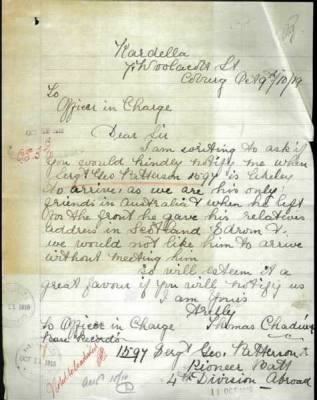 Nardella
7 Woolacott St
Coburg Oct 9th/10/19
To
Officer in Charge
Dear Sir
I am writing to ask if
you would kindly notify me when
Sergt Geo Patterson 1597 is likeley
to arrive, as we are his only
friends in Australia & when he left
for the front he gave his relatives
address in Scotland &
we would not like him to arrive
without meeting him
so will esteem it a
great favour if you will notify us
I am yours
Thomas
To Officer in Charge
Base Records
1597 Sergt Geo. Patterson
Pioneer Batt
4th Division Abroad